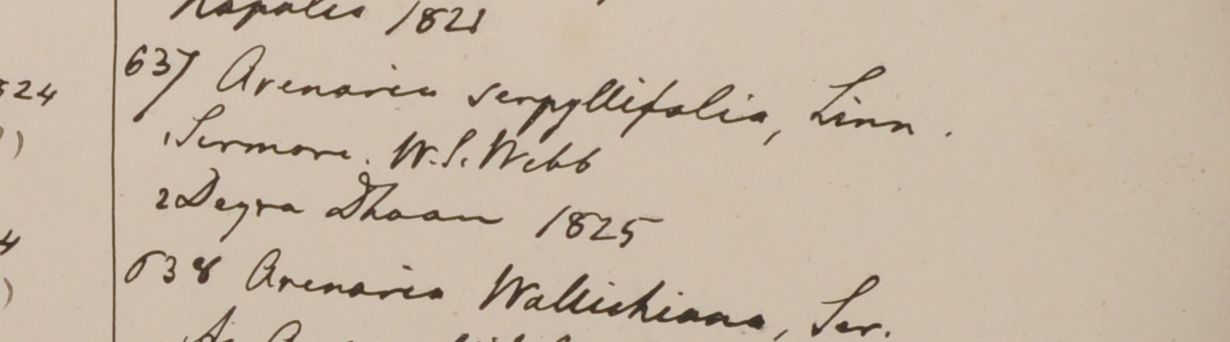 Napalia 1821
637 Arenaria serpyllifolia, Linn.
1 Sermore. W.S. Webb
2 Deyra Dhoon 1825
638 Arenaria Wallichiana, Ser.
524
)
4
)